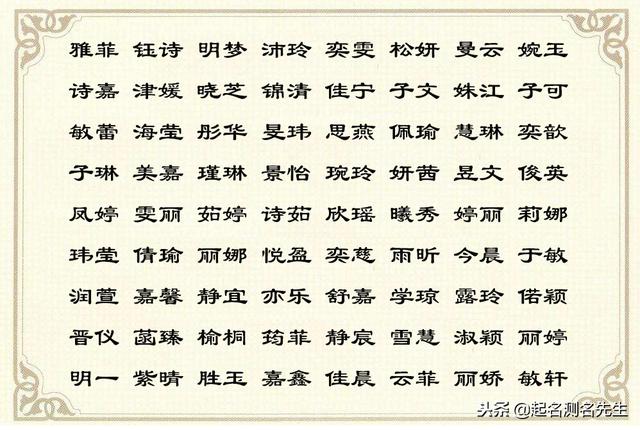 雅菲 钰诗 明梦 沛玲 奕雯 松妍 曼云 婉玉
诗嘉 津媛 晓芝 锦清 佳宁 子文 姝江 子可
敏蕾 海莹 彤华 旻玮 思燕 佩瑜 慧琳 奕歆
子琳 美嘉 瑾琳 景怡 琬玲 妍茜 昱文 俊英
凤婷 雯丽 茹婷 诗茹 欣瑶 曦秀 婷丽 莉娜
玮莹 倩瑜 丽娜 悦盈 奕慈 雨昕 今晨 于敏
润萱 嘉馨 静宜 亦乐 舒嘉 学琼 露玲 偌颖
晋仪 菡臻 榆桐 筠菲 静宸 雪慧 淑颖 丽婷
明一 紫晴 胜玉 嘉鑫 佳晨 云菲 丽娇 敏轩
头条 @起名测名先生